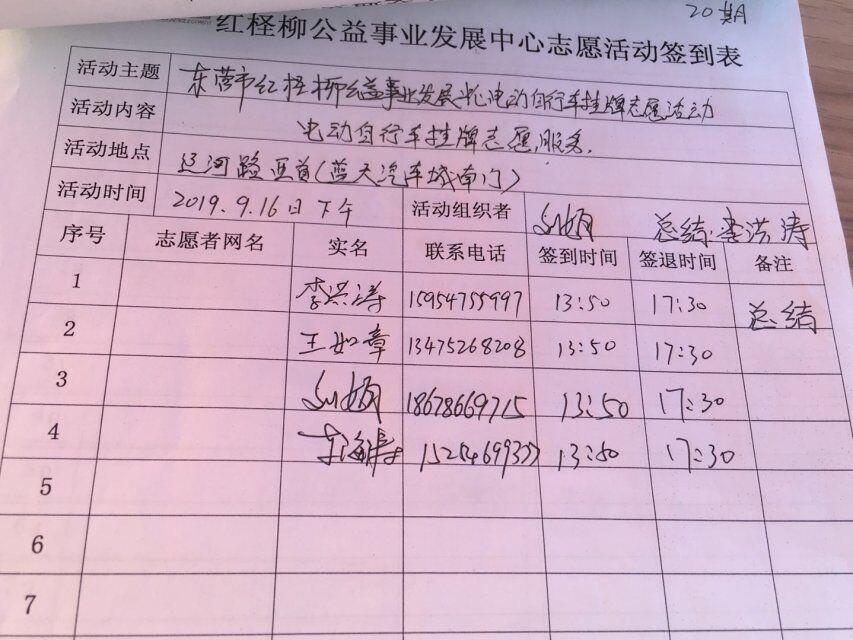 20期
红柽柳公益事业发展中心志愿活动签到表
活动主题 东营市红柽柳公益事业发展中心电动自行车挂牌志愿活动
活动内容 电动自行车挂牌志愿服务.
活动地点 辽河路 (蓝天汽车城南门)
活动时间 2019.9.16日下午 活动组织者 总结:李洪涛
序号 志愿者网名 实名 联系电话 签到时间 签退时间 备注
1 李洪涛 15954755997 13:50 17:30 总结
2 王如章 13475268208 13:50 17:30
3 18678669715 13:50 17:30
4 13:50 17:30
5
6
7